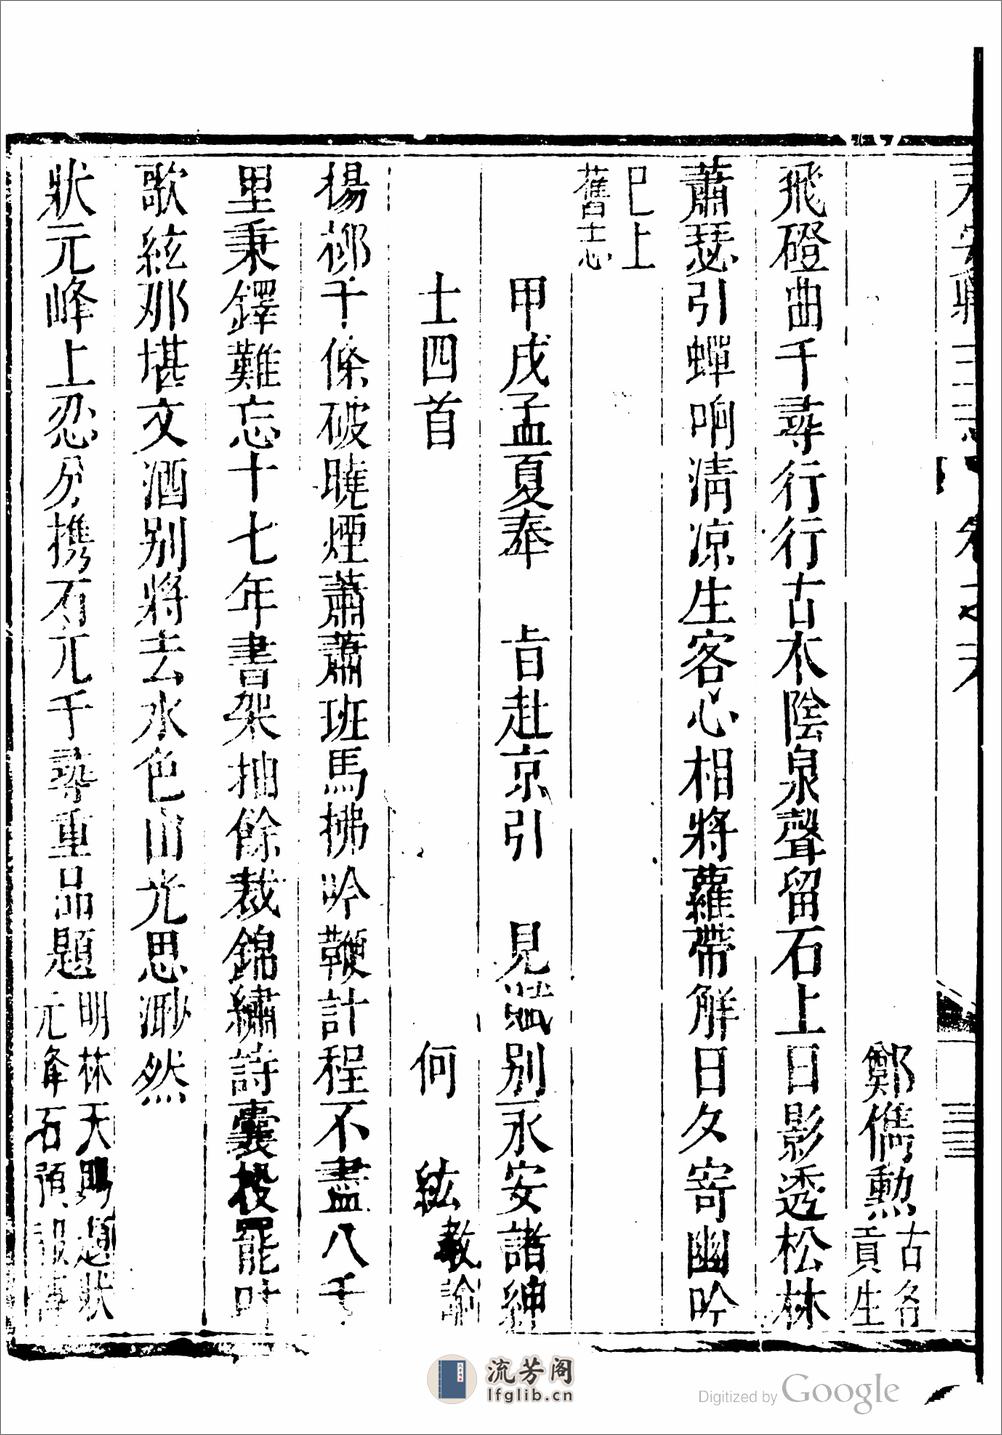 永安縣三志 卷之九
鄭儁勲古名貢生
飛磴曲千尋行行古木陰泉聲留石上日影透松林
蕭瑟引蟬响清凉生客心相將蘿帶解日久寄幽吟
巳上舊志
甲戌孟夏奉 旨赴京引 見賦別永安諸紳
士四首
何 紘教諭
楊桞千條破曉煙蕭蕭班馬拂吟鞭計程不盡八千
里秉鐸難忘十七年書架抽餘裁錦繡詩囊投罷叶
歌絃那堪文酒别將去水色山光思渺然
狀元峰上忍分携石元千尋重品題明林天賜題狀元峰石
流芳阁
lfglib.cn
Digitized by Google